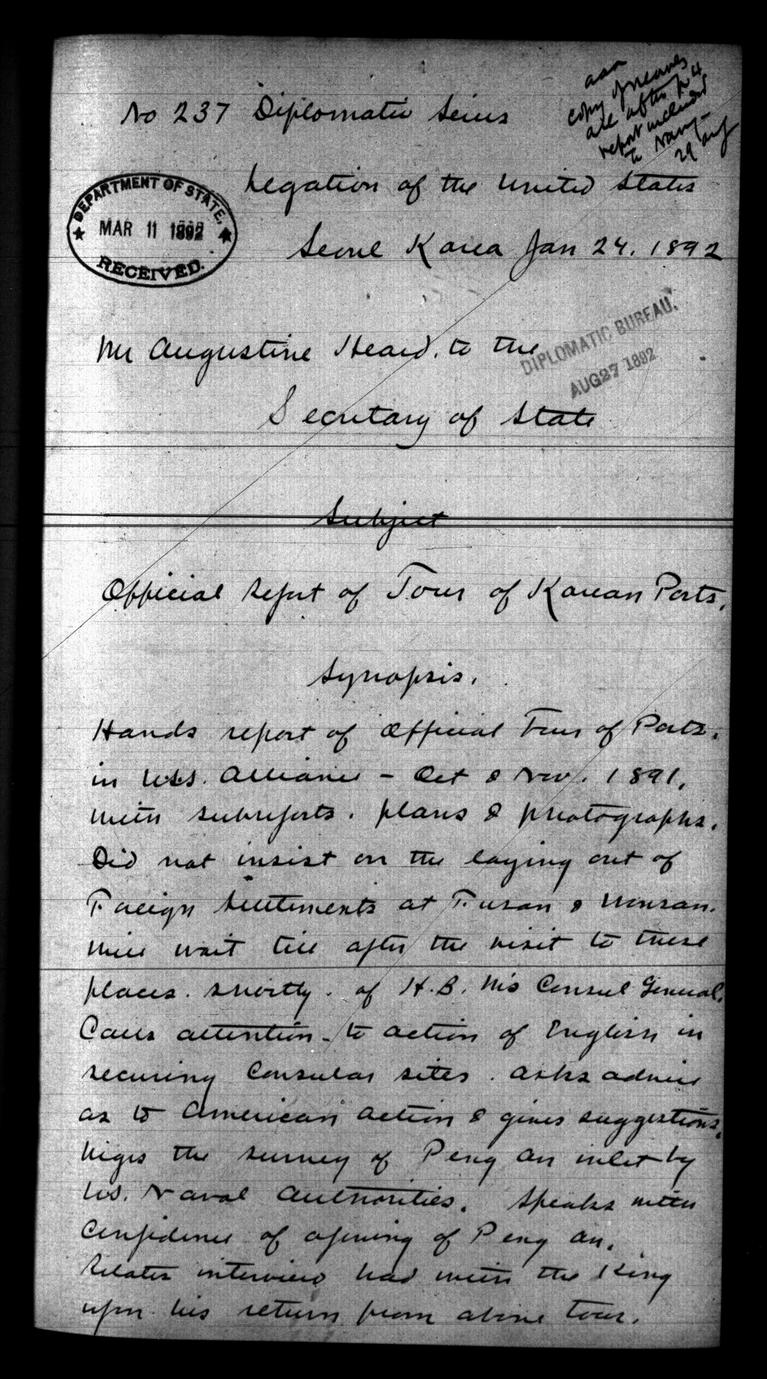 No 237 Diplomatic Series
copy
all after p 4
report
to Navy
29 Aug
Legation of the United States
DEPARTMENT OF STATE,
MAR 11 1892
RECEIVED.
Seoul Korea Jan 24. 1892
Mr Augustine Heard. to the
DIPLOMATIC BUREAU.
AUG 27 1892
Secretary of State
Subject
Official report of Tour of Korean Ports.
Synopsis.
Hands report of Official Tour of Ports.
in U.S.S. Alliance - Oct & Nov. 1891.
with subreports. plans & photographs.
Did not insist on the laying out of
Foreign Settlements at Fusan & Wonsan.
Will wait till after the visit to these
places. shortly. of H.B.M's Consul General.
Calls attention to action of English in
securing Consular sites. asks advice
as to American action & gives suggestions.
Urges the survey of Peng an inlet by
U.S. Naval Authorities. Speaks with
Confidence of opening of Peng an.
Relates interview had with the King
upon his return from above tour.